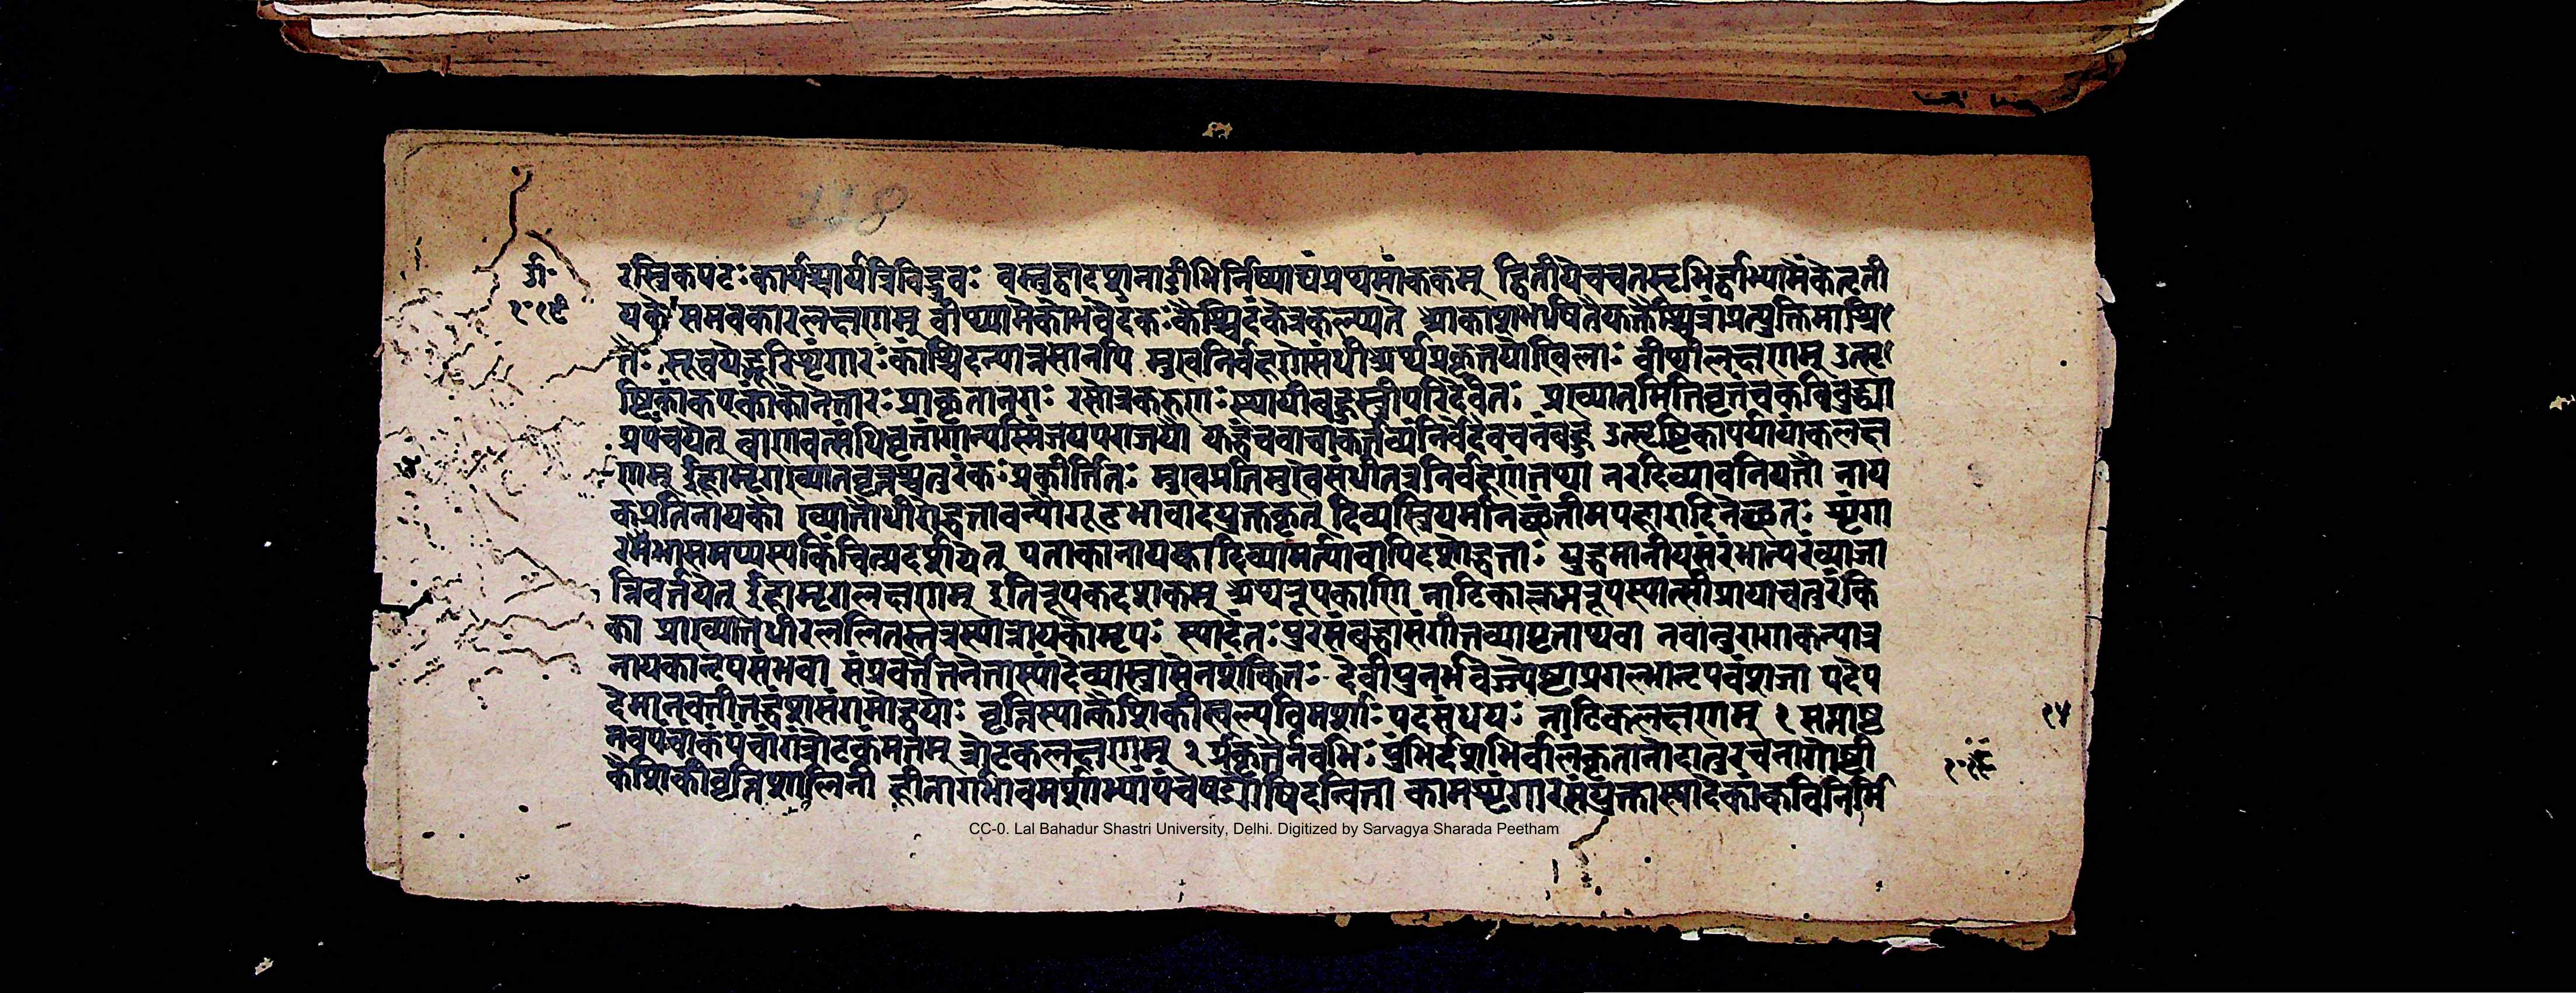 118
टी॰
१॰१९
रस्त्रिकपटः कार्यश्चायं त्रिविद्रवः वस्तुद्वादशनाडीभिर्निष्पाद्यं प्रथमांककम् द्वितीयेचचतसृभिर्द्वाभ्यामंकेतृती
यके समवकारलक्षणम् वीथ्यामेकोभवेदंकः कैश्चिदंकेत्रकल्प्यते आकाशभाषितैरुक्तैश्चित्रांप्रत्युक्तिमाश्रि
तः सूचयेद्भूरिशृंगारंकांश्चिदन्यान्रसानपि मुखनिर्वहणेसंधीअर्थप्रकृतयोखिलाः वीथीलक्षणम् उत्सृ
ष्टिकांकएकांकोनेतारःप्राकृतानराः रसोत्रकरुणःस्थायीबहुस्त्रीपरिदेवितं प्रख्यातमितिवृत्तंचकविर्बुद्ध्या
प्रपंचयेत् भाणवत्संधिवृत्तांगान्यस्मिंजयपराजयौ युद्धंचवाचाकर्त्तव्यंनिर्वेदवचनंबहु उत्सृष्टिकापर्यायांकलक्ष
णम् ईहामृगाख्यातवृत्तश्चतुरंकःप्रकीर्त्तितः मुखप्रतिमुखेसंधीतत्रनिर्वहणंतथा नरदिव्यावनियतौ नाय
कप्रतिनायकौ ख्यातौधीरोद्धतावन्योगूढभावादयुक्तकृत् दिव्यस्त्रियमनिच्छंतीमपहारादिनेच्छतः शृंगा
राभासमप्यस्यकिंचित्प्रदर्शयेत् पताकानायकादिव्यामर्त्यावापिदशोद्धताः युद्धमानीयसंरंभात्परंव्याजा
न्निवर्त्तयेत् ईहामृगलक्षणम् इतिरूपकदशकम् अथ्यत्रूपकाणि नाटिकाक्लृप्तरूपस्यात्स्त्रीप्रायाचतुरंकि
का प्राख्यातोधीरललितस्तत्रस्यान्नायकोनृपः स्यादंतःपुरसंबद्धासंगीतव्यापृताथवा नवानुरागाकन्यात्र
नायकानृपसंभवा संप्रवर्त्तेतनेतास्यांदेव्यास्त्रासेनशंकितः देवीपुनर्भवेज्ज्येष्टाप्रगल्भानृपवंशजा पदेप
देमानवतीतद्वशःसंगमोद्वयोः वृत्तिस्यात्कैशिकीस्वल्पविमर्शाःपदसंधयः नाटिकलक्षणम् १ सप्ताष्ट
नवपंचांकंपंचांगंत्रोटकंमतम् त्रोटकलक्षणम् २ प्रकृतैर्नवभिःपुंभिर्दशभिर्वालंकृतानोदात्तवचनागोष्ठी
कैशिकीवृत्तिशालिनी हीनागर्भावमर्शाभ्यांपंचषड्योषिदन्विता कामशृंगारसंयुक्तास्यादेकांकविनिर्मि
१४
CC-0. Lal Bahadur Shastri University, Delhi. Digitized by Sarvagya Sharada Peetham